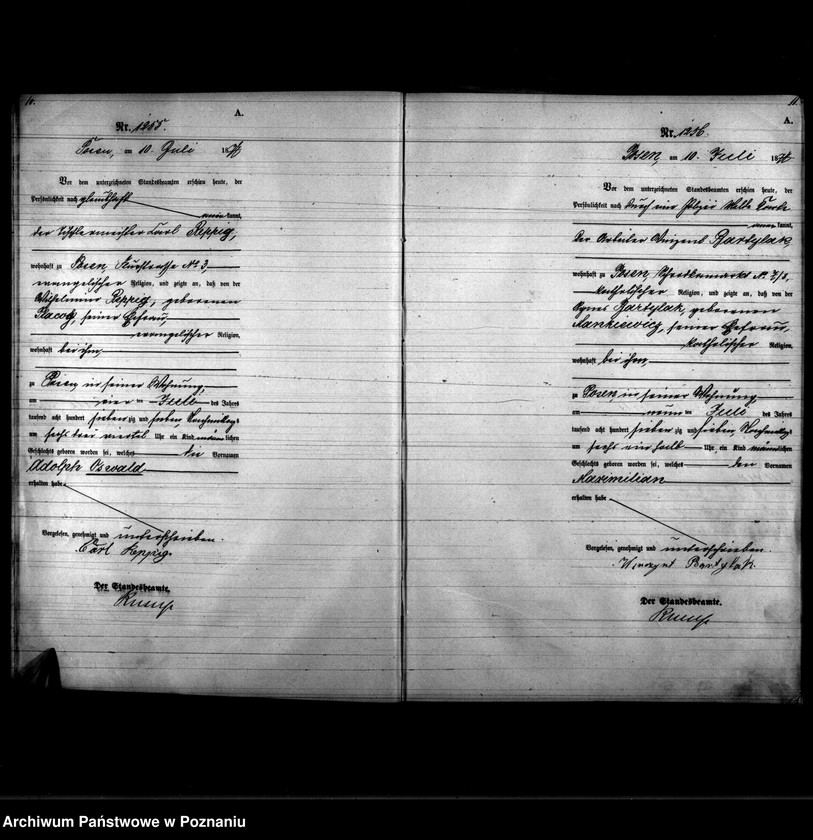 10.
A.
Nr. 1255.
Posen, am 10. Juli 1877
Vor dem unterzeichneten Standesbeamten erschien heute, der
Persönlichkeit nach glaubhaft
kannt,
der Tischlermeister Carl Reppig,
wohnhaft zu Posen, No 3,
evangelischer Religion, und zeigte an, daß von der
Wilhelmine Reppig, geborenen
seiner Ehefrau,
evangelischer Religion,
wohnhaft bei ihm,
zu Posen in seiner Wohnung
am vier ten Juli des Jahres
tausend acht hundert sieben zig und sieben, Vormittags
um sechs drei viertel Uhr ein Kind männlichen
Geschlechts geboren worden sei, welches die Vornamen
Adolph Oswald
erhalten habe
Vorgelesen, genehmigt und unterschrieben.
Carl Reppig.
Der Standesbeamte.
11.
A.
Nr. 1256.
Posen, am 10. Juli 1877
Vor dem unterzeichneten Standesbeamten erschien heute, der
Persönlichkeit nach durch
kannt,
der Arbeiter Vinzent Bartylak
wohnhaft zu Posen, No 7/8,
katholischer Religion, und zeigte an, daß von der
Agnes Bartylak, geborenen
seiner Ehefrau,
katholischer Religion,
wohnhaft bei ihm,
zu Posen in seiner Wohnung
am neun ten Juli des Jahres
tausend acht hundert sieben zig und sieben, Vormittags
um sechs ein halb Uhr, ein Kind männlichen
Geschlechts geboren worden sei, welches den Vornamen
Maximilian
erhalten habe
Vorgelesen, genehmigt und unterschrieben.
Bartylak.
Der Standesbeamte.
Archiwum Państwowe w Poznaniu